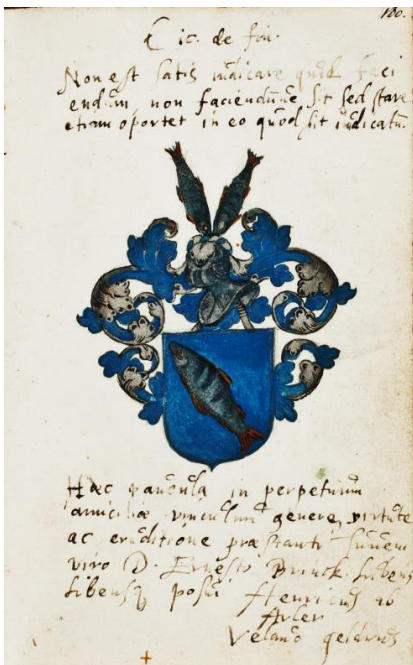 100.
Cic. de fin.
Non est satis iudicare quid faci
endum non faciendumue sit sed stare
etiam oportet in eo quod sit iudicatu.
Haec paucula in perpetuum
amicitiae vinculum genere, virtute
ac eruditione praestanti iuueni
viro D. Ernesto Brinck lubens
libensq posui
Henricus ab
Arler
Velauus geldrus